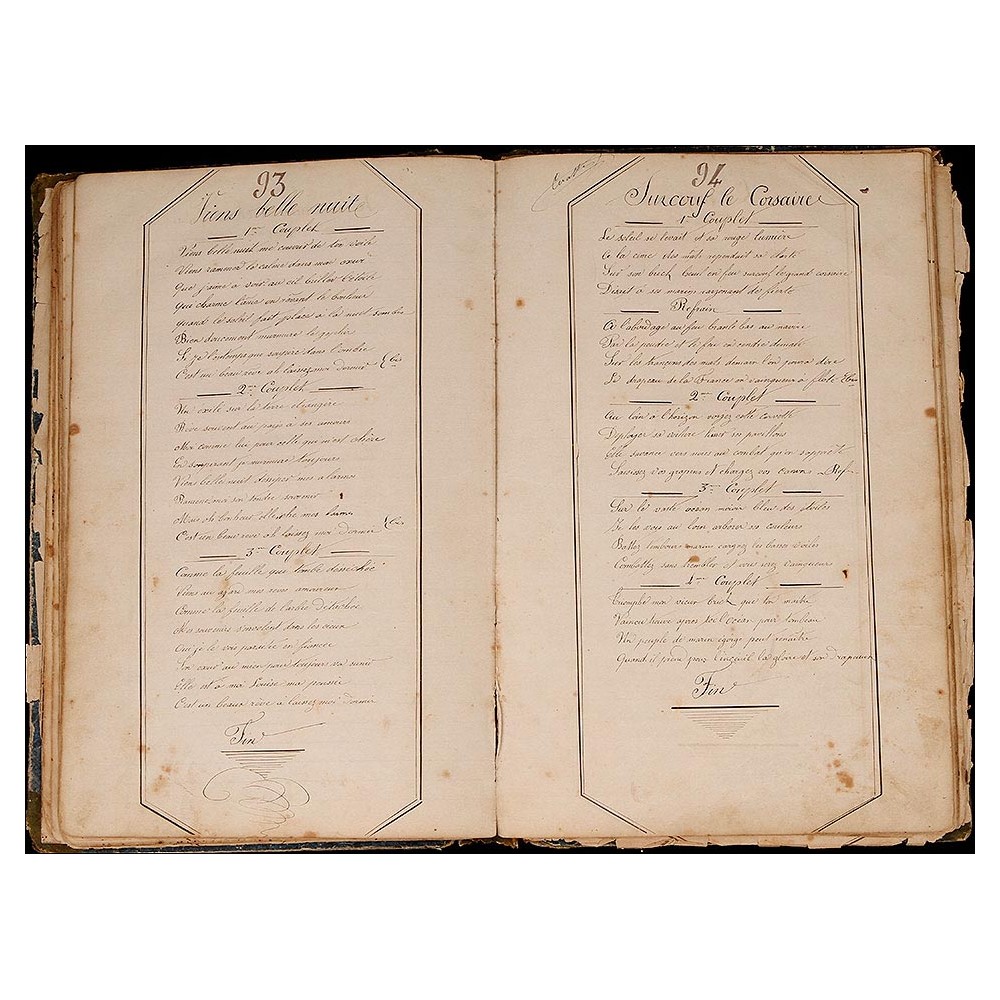 93
Viens belle nuit
1er Couplet
Viens belle nuit me couvrir de ton voile
Viens ramener le calme dans mon cœur
Que j'aime à voir au ciel briller l'étoile
Qui charme l'âme en rêvant le bonheur
quand le soleil fait place à la nuit sombre
Bien doucement murmure le zephir
que soupire dans l'ombre
C'est un beau rêve ah laissez moi dormir bis
2me Couplet
Un exilé sur la terre etrangère
Rêve souvent au pays à ses amours
Moi comme lui pour celle qui m'est chère
En soupirant je murmure toujours
Viens belle nuit mes alarmes
Ramenez moi son tendre souvenir
Mais oh bonheur elle mes larmes
C'est un beau rêve oh laissez moi dormir bis
3me Couplet
Comme la feuille qui tombe dessechée
Viens mes sens amoureux
Comme la feuille de l'arbre détachée
Mes souvenirs s'envolent dans les cieux
Oui je le vois
Son cœur au mien pour toujours va s'unir
Elle est à moi Louise ma pensée
C'est un beau rêve a laissez moi dormir
Fin
94
Surcouf le Corsaire
1er Couplet
Le soleil se levait et sa rouge lumière
A la cime des mats rependait sa clarté
Sur son brick surcouf le grand corsaire
Disait à ses marins
Refrain
A l'abordage au feu branle bas au navire
Sur la poudre et le feu
Sur les tronçons des mats demain l'on pourra dire
Le drapeau de la France en vainqueur a floté bis
2me Couplet
Au loin à l'horizon voyez cette corvette
Deployer sa voilure hisser ses pavillons
Elle s'avance vers nous au combat qu'on s'apprete
Saisissez vos grapins et chargez vos canons Ref
3me Couplet
Sur le vaste ocean miroir bleu des étoiles
Je les vois au loin arborer ses couleurs
Battez tambours marins cargez les basses voiles
Combattez sans trembler et vous serez vainqueurs
4me Couplet
Triomphe mon vieux brick que ton maitre
Vaincu trouve après toi l'ocean pour tombeau
Un peuple de marins égorgé peut renaître
Quand il perd la gloire et son drapeau
Fin